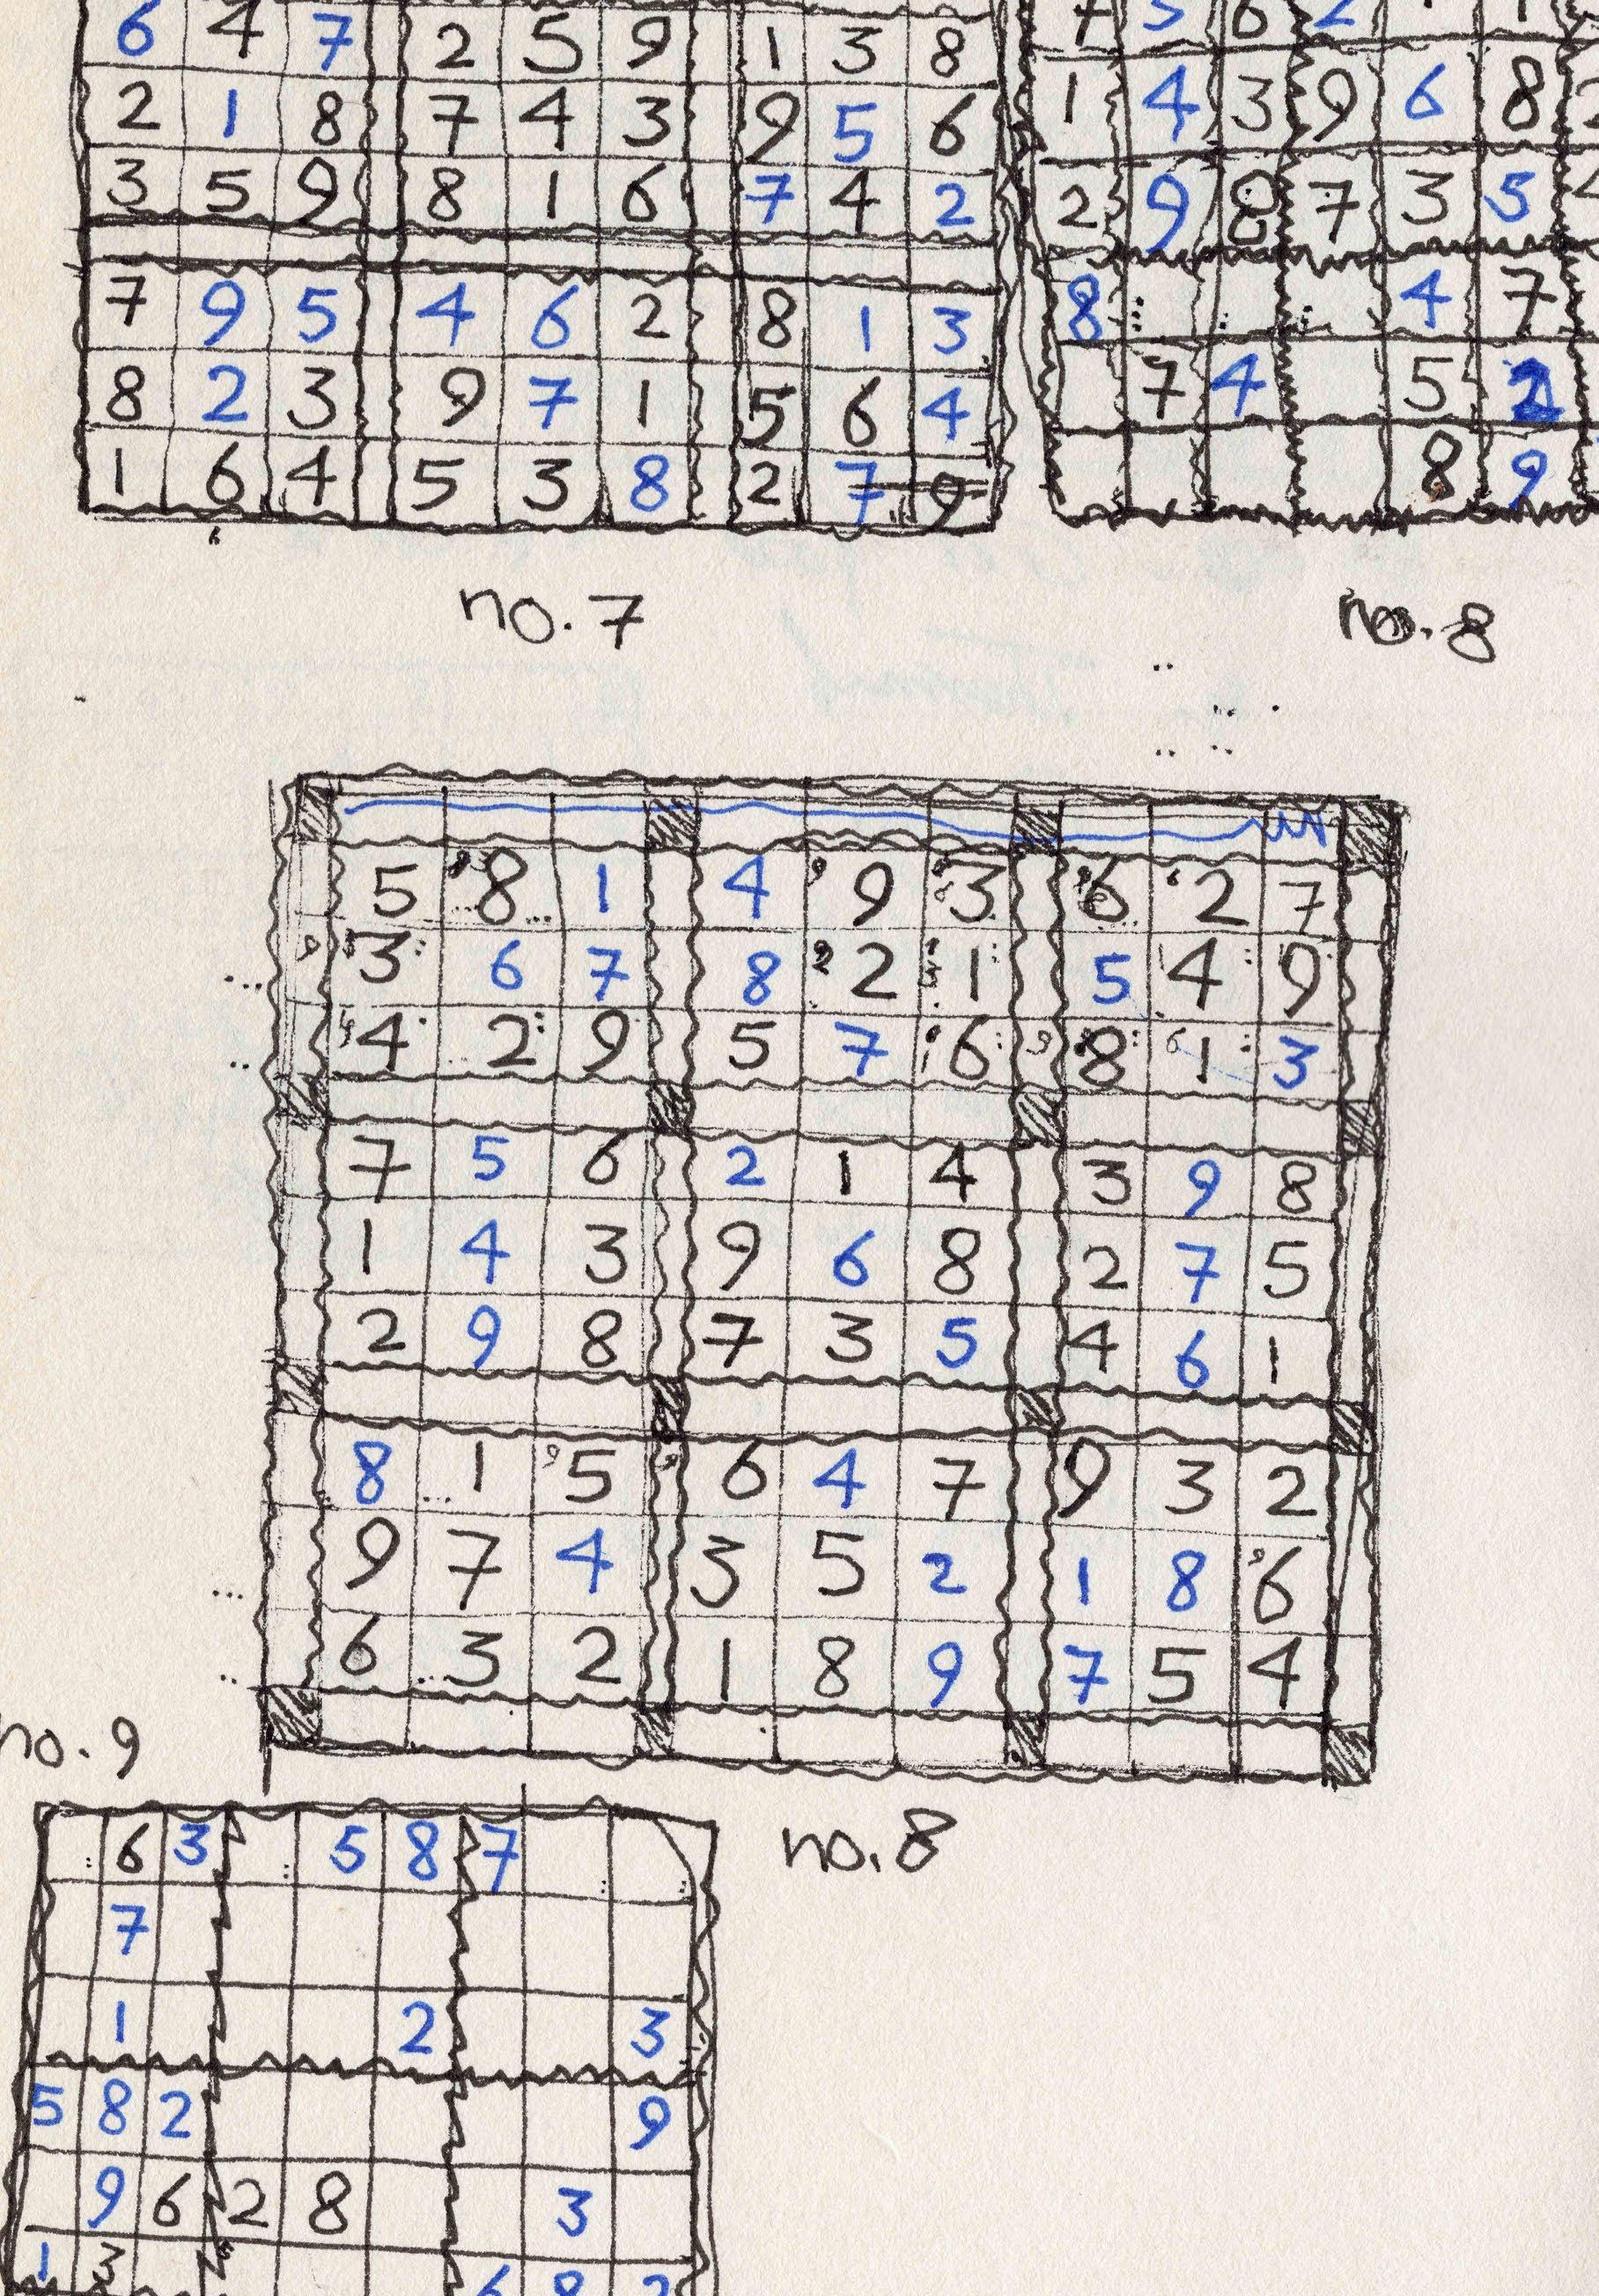 6 4 7 2 5 9 1 3 8
2 1 8 7 4 3 9 5 6
3 5 9 8 1 6 7 4 2
7 9 5 4 6 2 8 1 3
8 2 3 9 7 1 5 6 4
1 6 4 5 3 8 2 7 9
no. 7
1 4 3 9 6 8
2 9 8 7 3 5
8 4 7
7 4 5 2
8 9
no. 8
5 8 1 4 9 3 6 2 7
3 6 7 8 2 1 5 4 9
4 2 9 5 7 6 8 1 3
7 5 6 2 1 4 3 9 8
1 4 3 9 6 8 2 7 5
2 9 8 7 3 5 4 6 1
8 1 5 6 4 7 9 3 2
9 7 4 3 5 2 1 8 6
6 3 2 1 8 9 7 5 4
no. 8
no. 9
6 3 5 8 7
7
1 2 3
5 8 2 9
9 6 2 8 3
1 3 6 8 2